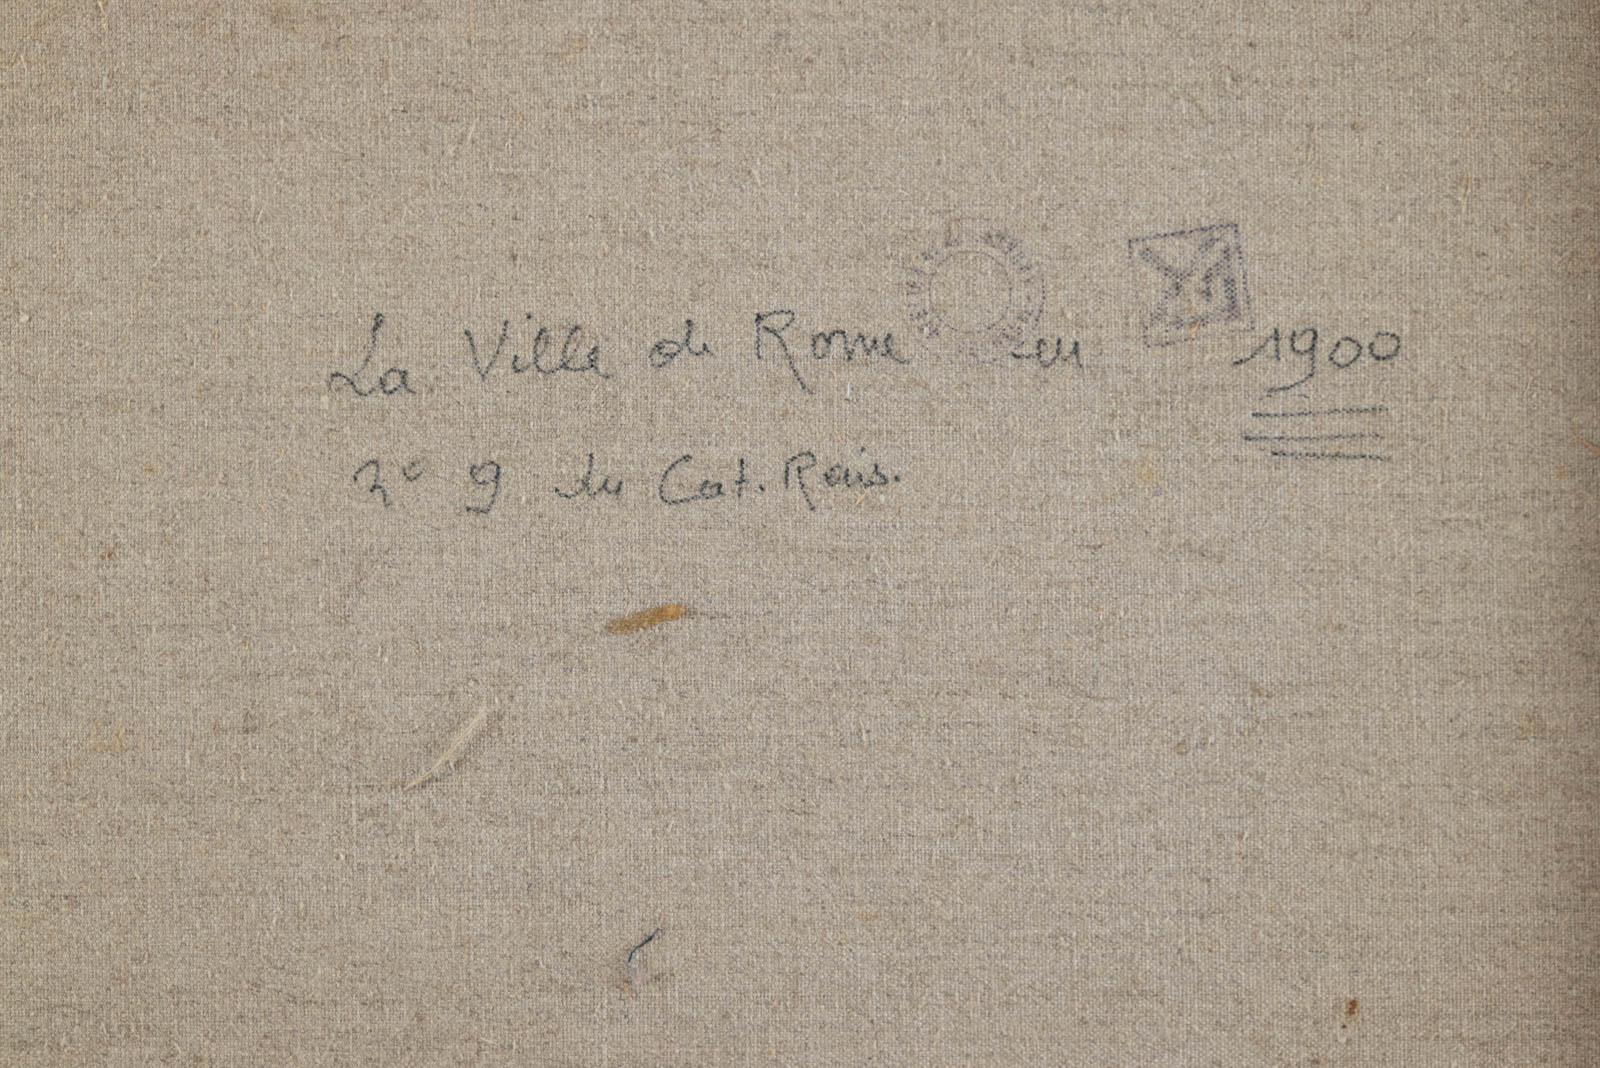 La Ville de Rome en 1900
n° 9 du Cat. Rais.